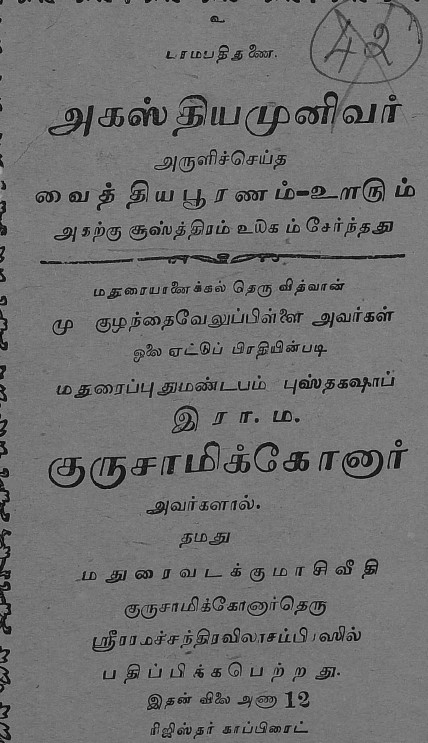 உ
42
அகஸ்தியமுனிவர்
அருளிச்செய்த
வைத்தியபூரணம்-உளரும்
அதற்கு சூஸ்த்திரம் உலகம்சேர்ந்தது
மதுரையானைக்கல் தெரு வித்வான்
மு குழந்தைவேலுப்பிள்ளை அவர்கள்
ஒலை ஏட்டுப் பிரதியின்படி
மதுரைப்புதுமண்டபம் புஸ்தகஷாப்
இ ரா. ம.
குருசாமிக்கோனார்
அவர்களால்.
தமது
மதுரைவடக்குமாசிவீதி
குருசாமிக்கோனார்தெரு
ஸ்ரீராமச்சந்திரவிலாசம்பிரஸில்
பதிப்பிக்கபெற்றது.
இதன் விலை அணா 12
ரிஜிஸ்தர் காப்பிரைட்